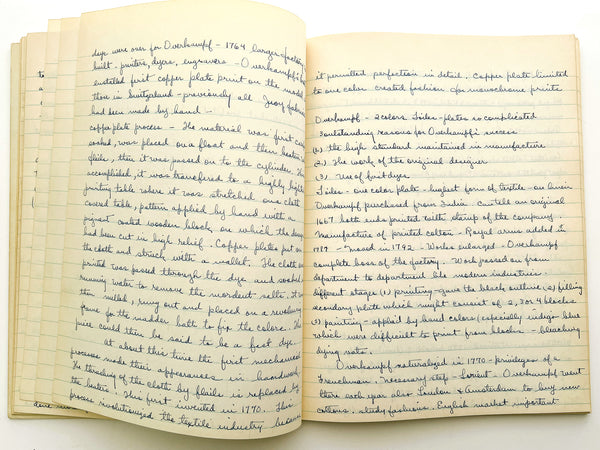 dye were over for Overhampf - 1764 larger factory
built - printers, dyers, engravers - Overhampf
installed first copper plate print on the model
then in Switzerland - previously all Jouy fabrics
had been made by hand -
copper plate process - The material was first
soaked, was placed on a float and then beaten
flails, then it was passed on to the cylinder. This
accomplished, it was transferred to a highly
printing table where it was stretched on a cloth
covered table, pattern applied by hand with a
pigment coated wooden block, on which the design
had been cut in high relief. Copper plates put on
the cloth and struck with a mallet. The cloth once
printed was passed through the dye and soaked in
running water to remove the mordent salts. It was
then milled, rung out and placed on a revolving
frame for the madder bath to fix the colors. The
piece could then be said to be a fast dye.
at about this time the first mechanical
processes made their appearances in handwork.
The thrashing of the cloth by flails is replaced by
the beaters. This first invented in 1770. This
process revolutionized the textile industry because
it permitted perfection in detail. Copper plate limited
to one color created fashion for monochrome prints
Overhampf - 2 colors. Sides - plates so complicated
3 outstanding reasons for Overhampf's success
(1.) the high standard maintained in manufacture
2.) The work of the original designer
(3) Use of fast dyes
Sides - one color plate - highest form of textile - on linen
Overhampf purchased from India - an original
1667 both ends printed with stamp of the company.
Manufacture of printed cotton - Royal arms added in
1787 - moved in 1792 - Works enlarged - Overhampf
complete boss of the factory. Work passed on from
department to department like modern industries.
different stages (1) printing - gave the black outline (2) filling
secondary plate which might consist of 2, 3 or 4 blocks
(3) painting - applied by hand colors (especially indigo blue
which were difficult to print from blocks - bleaching
dying vats.
Overhampf naturalized in 1770 - privileges of a
Frenchman. Necessary step - Lorient - Overhampf went
there each year also London & Amsterdam to buy new
cottons, study fashions. English market important